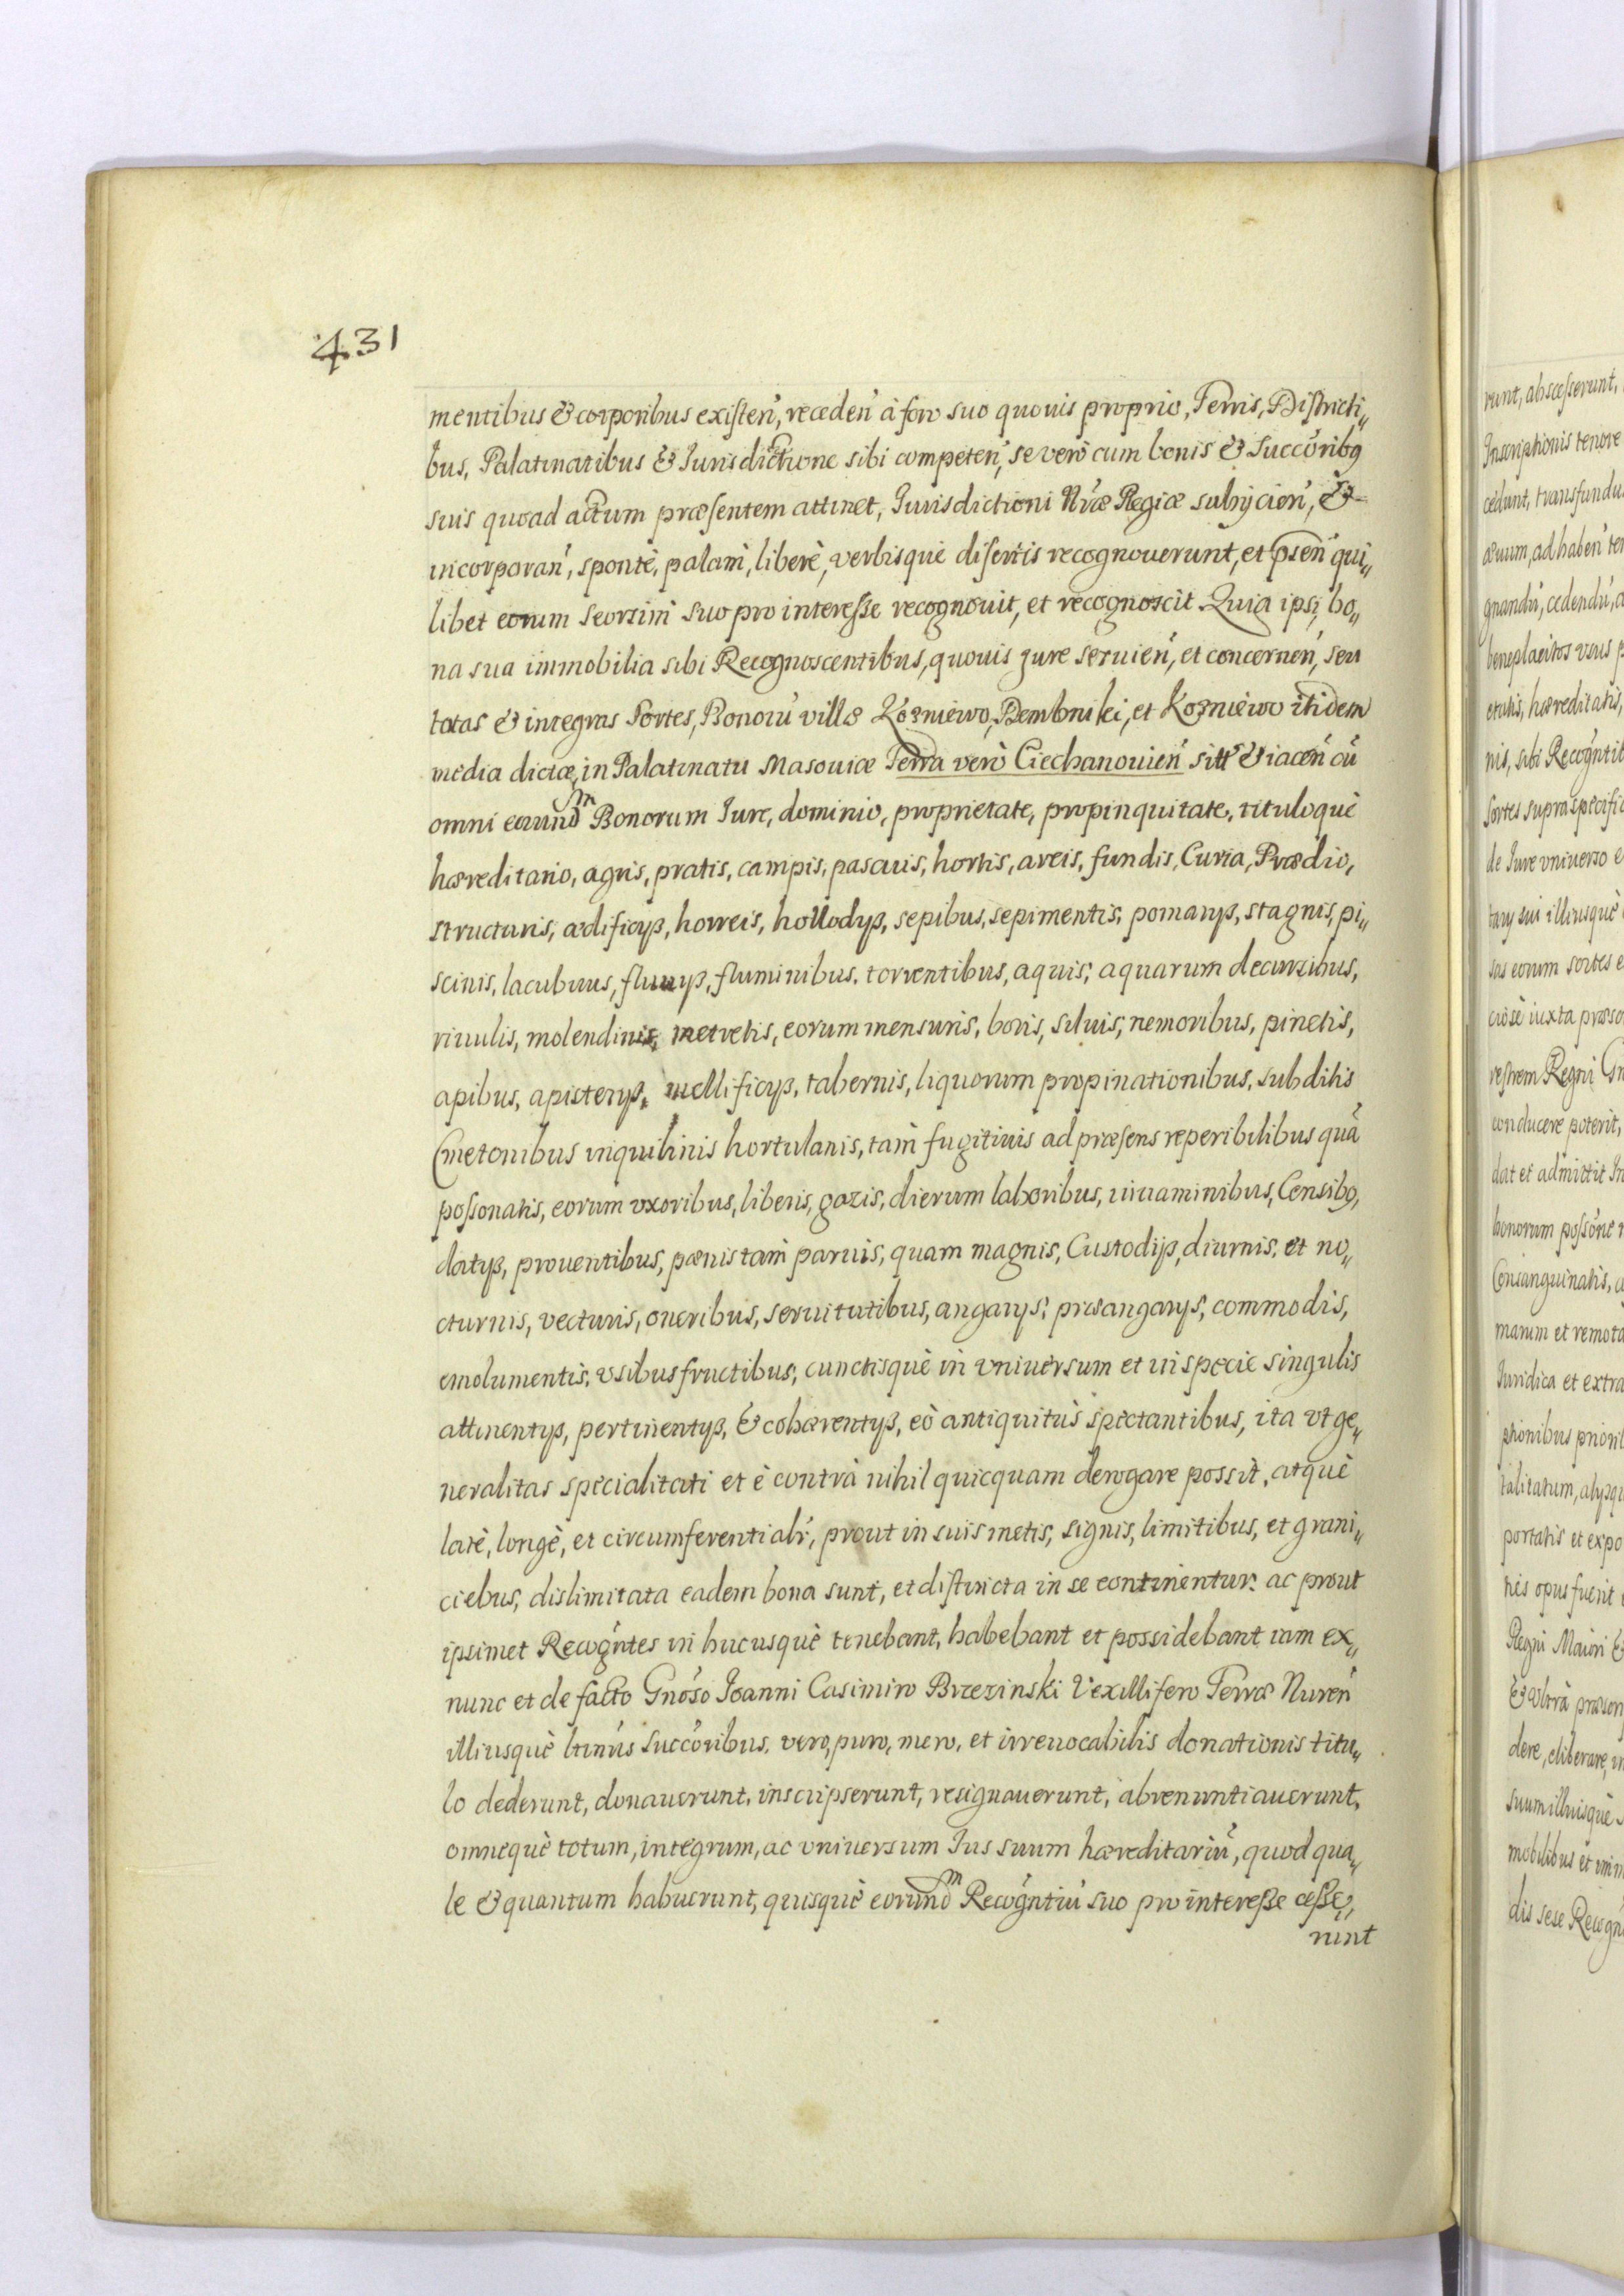 431
mentibus & corporibus existen̄, receden̄ à foro suo quouis proprio, Terris, Districti„
bus, Palatinatibus & Jurisdictione sibi competen̄, se verò cum bonis & Succōribq
suis quoad actum præsentem attinet, Jurisdictioni Nræ Regiæ subijcien̄, &
incorporan̄, spontè, palam̀, liberè, verbisquè disertis recognouerunt, et psen̄ qui„
libet eorum seorsim̀ suo pro interesse recognouit, et recognoscit. Quia ipsi, bo„
na sua immobilia sibi Recognoscentibus, quouis jure seruien̄, et concernen̄, seu
totas & integras Sortes, Bonorū villæ Kozniewo, Dembniki, et Kozniewo itidem
media dictæ, in Palatinatu Masouiæ Terra verò Ciechanouien̄ sitt & iacen̄ cū
omni eorundm Bonorum Jure, dominio, proprietate, propinquitate, tituloquè
hæreditario, agris, pratis, campis, pascuis, hortis, areis, fundis, Curia, Prædio,
structuris, ædificijs, horreis, hollodijs, sepibus, sepimentis, pomarijs, stagnis, pi„
scinis, lacubuus, fluuijs, fluminibus, torrentibus, aquis, aquarum decursibus,
riuulis, molendinis, metretis, eorum mensuris, boris, siluis, nemoribus, pinetis,
apibus, apisterijs, mellificijs, tabernis, liquorum propinationibus, subditis
Cmetonibus inquilinis hortulanis, tam̀ fugitiuis ad præsens reperibilibus quā
possonatis, eorum vxoribus, liberis, gazis, dierum laboribus, iuuaminibus, Censibq,
datijs, prouentibus, pænis tam̀ paruis, quam magnis, Custodijs, diurnis, et no„
cturnis, vecturis, oneribus, seruitutibus, angarijs, præangarijs, commodis,
emolumentis, vsibusfructibus, cunctisquè in vniuersum et in specie singulis
attinentijs, pertinentijs, & cohærentijs, eò antiquitùs spectantibus, ita vt ge„
neralitas specialitati et è contrà nihil quicquam derogare possit, atquè
latè, longè, et circumferentialr, prout in suis metis, signis, limitibus, et grani„
ciebus, dislimitata eadem bona sunt, et districta in se continentur: ac prout
ipsimet Recogn̄tes in hucusquè tenebant, habebant et possidebant iam ex„
nunc et de facto Gnōso Joanni Casimiro Brzezinski Vexillifero Terræ Nuren̄
illiusquè ltimis Succōribus, vero, puro, mero, et irreuocabilis donationis titu„
lo dederunt, donauerunt, inscripserunt, resignauerunt, abrenuntiauerunt,
omnequè totum, integrum, ac vniuersum Jus suum hæreditariū, quod qua„
le & quantum habuerunt, quisquè eorundm Recogn̄tiū suo pro interesse cesse„
runt
runt, abscesserunt,
Inscriptionis tenore
cedunt, transfundu
æuum, ad haben̄ te
gnandū, cedendū, 
beneplacitos vsus
hæreditatis,
nis, sibi Recogn̄ti
Sortes supraspecific
de Jure vniuerso e
tarij sui illiusquè
sas eorum sortes e
iuxta præsc
Regni
conducere poterit,
dat et admittit In
bonorum possōne
Consanguinatis,
et remota
Juridica et extra
portatis et expo
nes opus fuerit
Regni Maiori &
& vltrà præson
dere, eliberare,
suum illiusquè
mobilibus et imm
dis sese Recogn̄